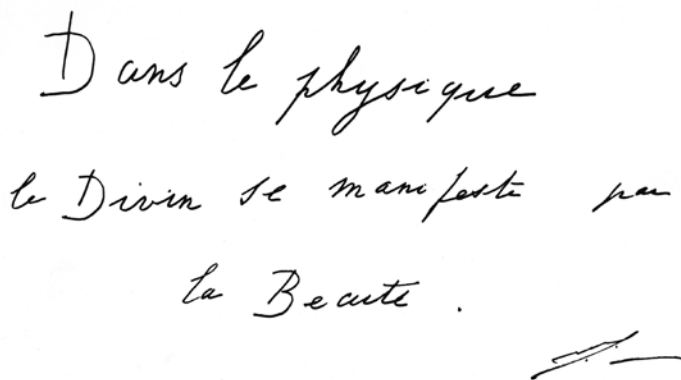 Dans le physique
le Divin se manifeste par
la Beauté.